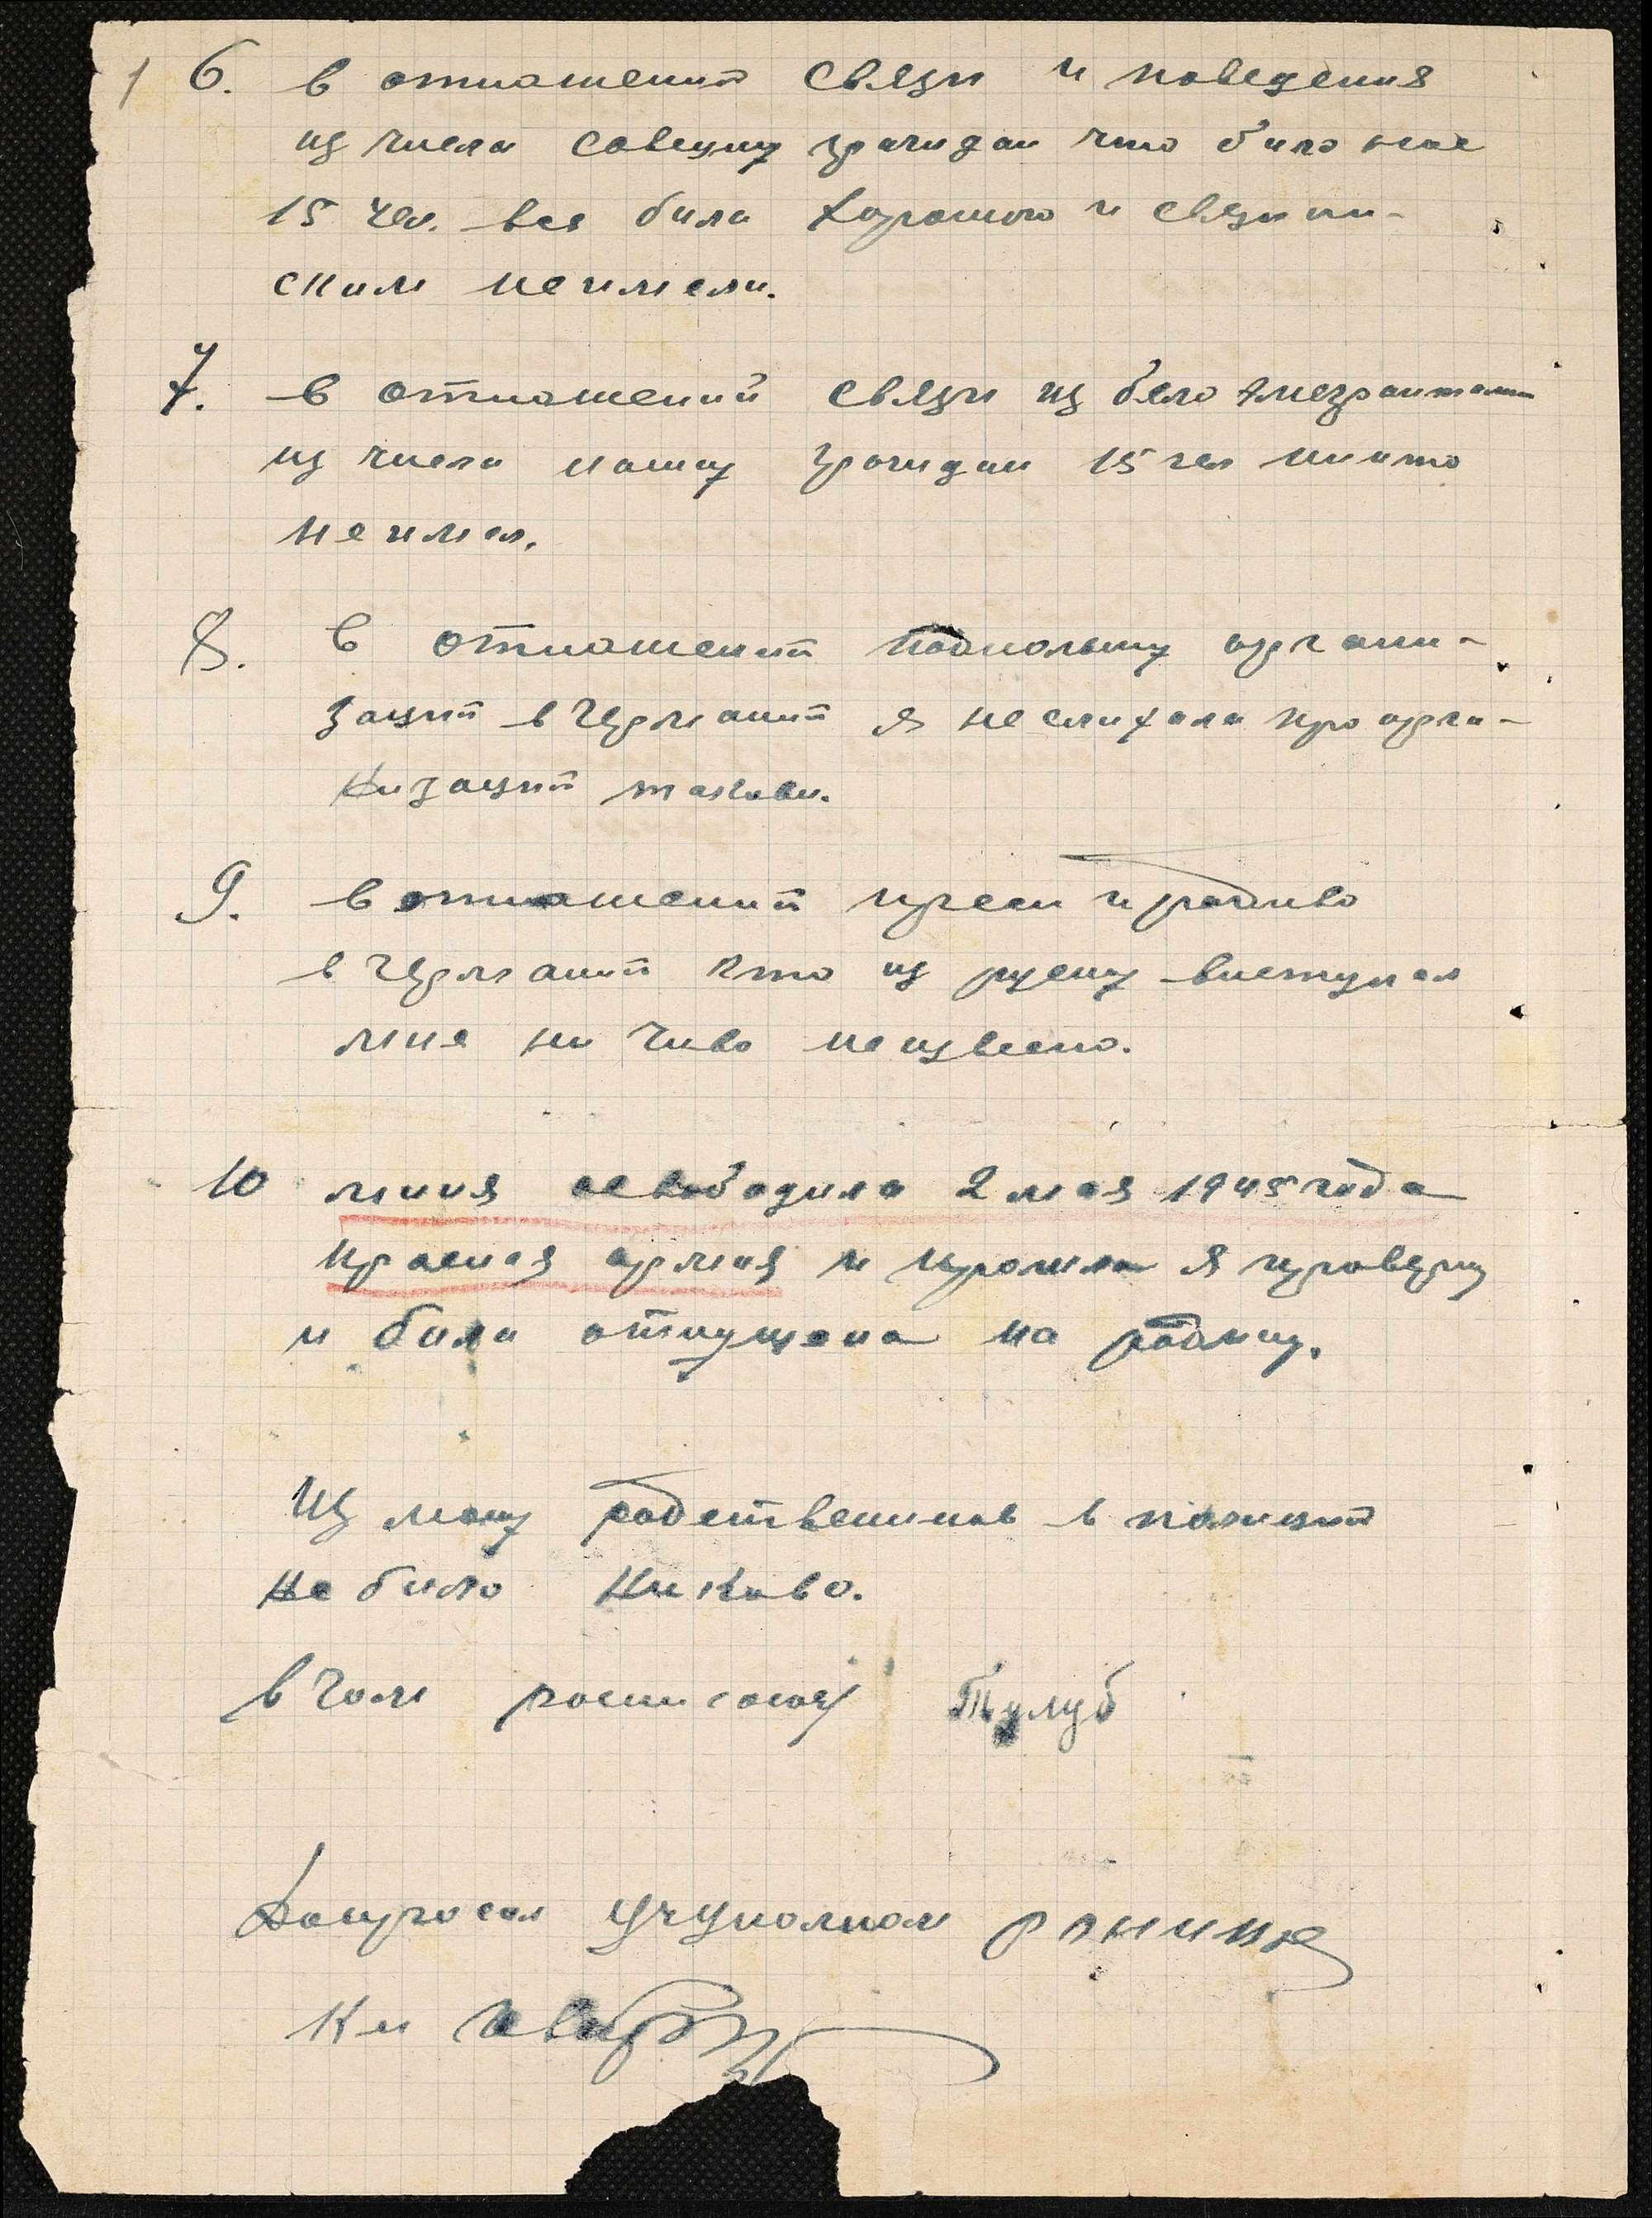 6. в отношений связи и поведения
из числа совецих гражидан что било нас
15 чел. все били хорошого и связи ни-
ским неимели.
7. в отношений связи из бело Эмегрантами
из числа наших гражидан 15 чел никто
неимел.
8. в отношений подпольних аргани-
зацый в Германий я неслихала про арга-
низацый такови.
9. в отношений преси и радиво
в Германий кто из руских виступал
мне ни чиво неизвесно.
10 миня асвабадила 2 мая 1945 года
красная армия и прошла я праверку
и била отпущена на родину.
Из моих родственников в полицый
не било никаво.
в чом росписуюсь Тулуб
Допросил учуполном